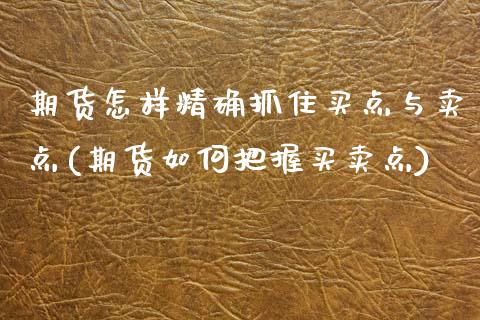 期货怎样精确抓住买点与卖
点(期货如何把握买卖点)